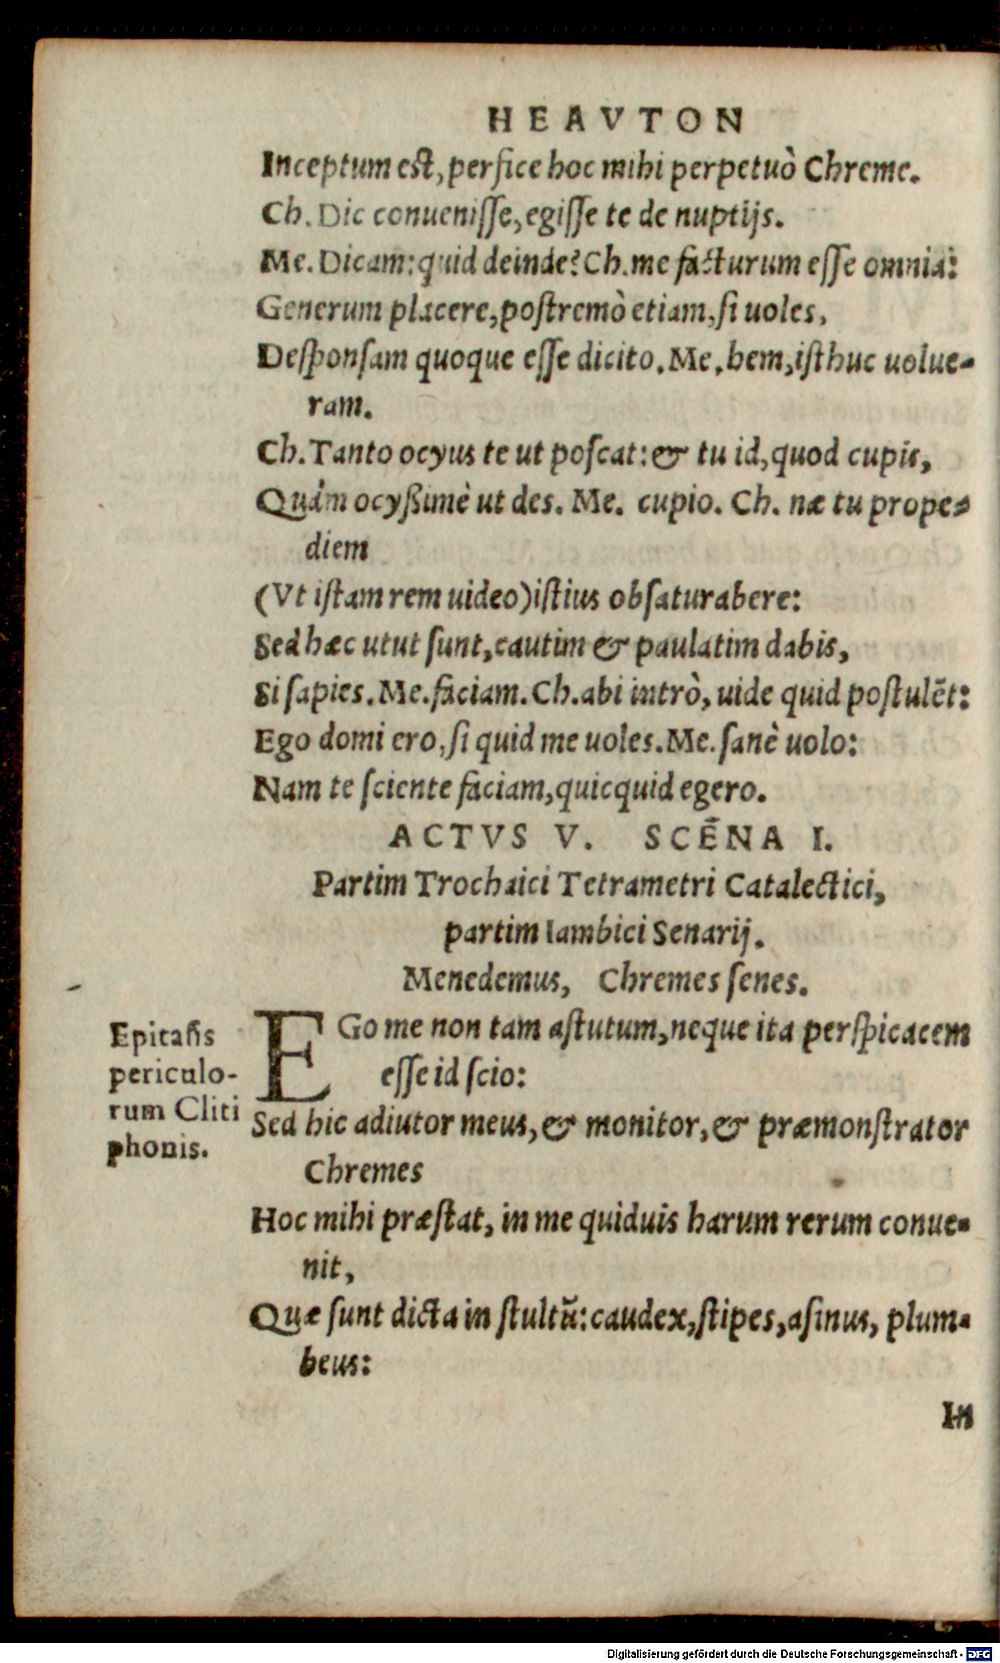 HEAVTON
Inceptum est, perfice hoc mihi perpetuò Chreme.
Ch. Dic conuenisse, egisse te de nuptijs.
Me. Dicam: quid deinde? Ch. me facturum esse omnia:
Generum placere, postremò etiam, si uoles,
Desponsam quoque esse dicito. Me. hem, isthuc uolue-
ram.
Ch. Tanto ocyus te ut poscat: & tu id, quod cupis,
Quàm ocyßimè ut des. Me. cupio. Ch. næ tu prope-
diem
(Vt istam rem uideo) istius obsaturabere:
Sed hæc utut sunt, cautim & paulatim dabis,
Si sapies. Me. faciam. Ch. abi intrò, uide quid postulēt:
Ego domi ero, si quid me uoles. Me. sanè uolo:
Nam te sciente faciam, quicquid egero.
ACTVS V. SCĒNA I.
Partim Trochaici Tetrametri Catalectici,
partim Iambici Senarij.
Menedemus, Chremes senes.
EGo me non tam astutum, neque ita perspicacem
esse id scio:
Sed hic adiutor meus, & monitor, & præmonstrator
Chremes
Hoc mihi præstat, in me quiduis harum rerum conue-
nit,
Quæ sunt dicta in stultū: caudex, stipes, asinus, plum-
beus:
In
Epitasis
periculo-
rum Cliti
phonis.
Digitalisierung gefördert durch die Deutsche Forschungsgemeinschaft - DFG